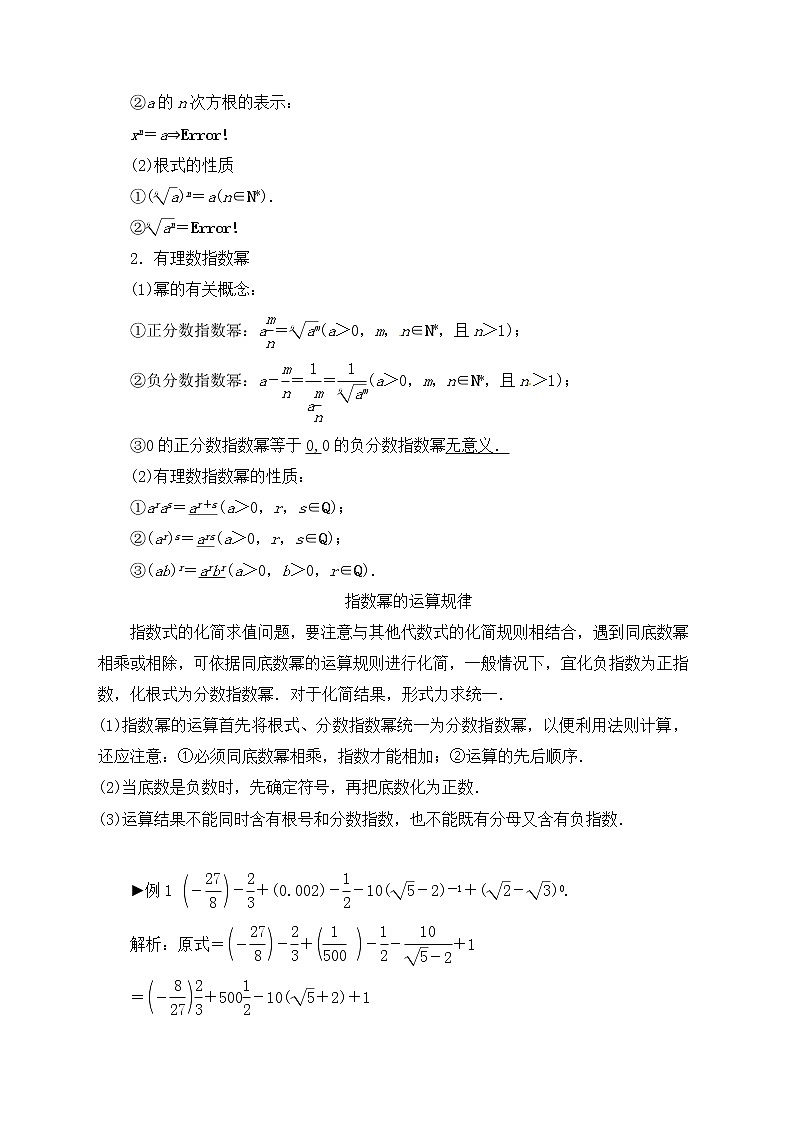 ②a的n次方根的表示：
xⁿ＝a⇒Error!
(2)根式的性质
①(ⁿ√a)ⁿ＝a(n∈N*)．
②ⁿ√aⁿ＝Error!
2．有理数指数幂
(1)幂的有关概念：
①正分数指数幂：a^(m/n)=ⁿ√a^m(a＞0，m，n∈N*，且n＞1)；
②负分数指数幂：a－m/n=1/a^(m/n)=1/ⁿ√a^m(a＞0，m，n∈N*，且n＞1)；
③0的正分数指数幂等于0,0的负分数指数幂无意义．
(2)有理数指数幂的性质：
①a^r a^s＝a^(r＋s)(a＞0，r，s∈Q)；
②(a^r)^s＝a^(rs)(a＞0，r，s∈Q)；
③(ab)^r＝a^r b^r(a＞0，b＞0，r∈Q)．
指数幂的运算规律
指数式的化简求值问题，要注意与其他代数式的化简规则相结合，遇到同底数幂
相乘或相除，可依据同底数幂的运算规则进行化简，一般情况下，宜化负指数为正指
数，化根式为分数指数幂．对于化简结果，形式力求统一．
(1)指数幂的运算首先将根式、分数指数幂统一为分数指数幂，以便利用法则计算，
还应注意：①必须同底数幂相乘，指数才能相加；②运算的先后顺序．
(2)当底数是负数时，先确定符号，再把底数化为正数．
(3)运算结果不能同时含有根号和分数指数，也不能既有分母又含有负指数．
►例1 (－27/8)－2/3＋(0.002)－1/2－10(√5－2)^－1＋(√2－√3)^0.
解析：原式＝(－27/8)－2/3＋(1/500)－1/2－10/(√5－2)＋1
＝(－8/27)2/3＋500 1/2－10(√5＋2)＋1